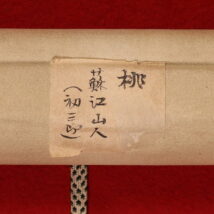 桃
蘇江山人
(初三郎)